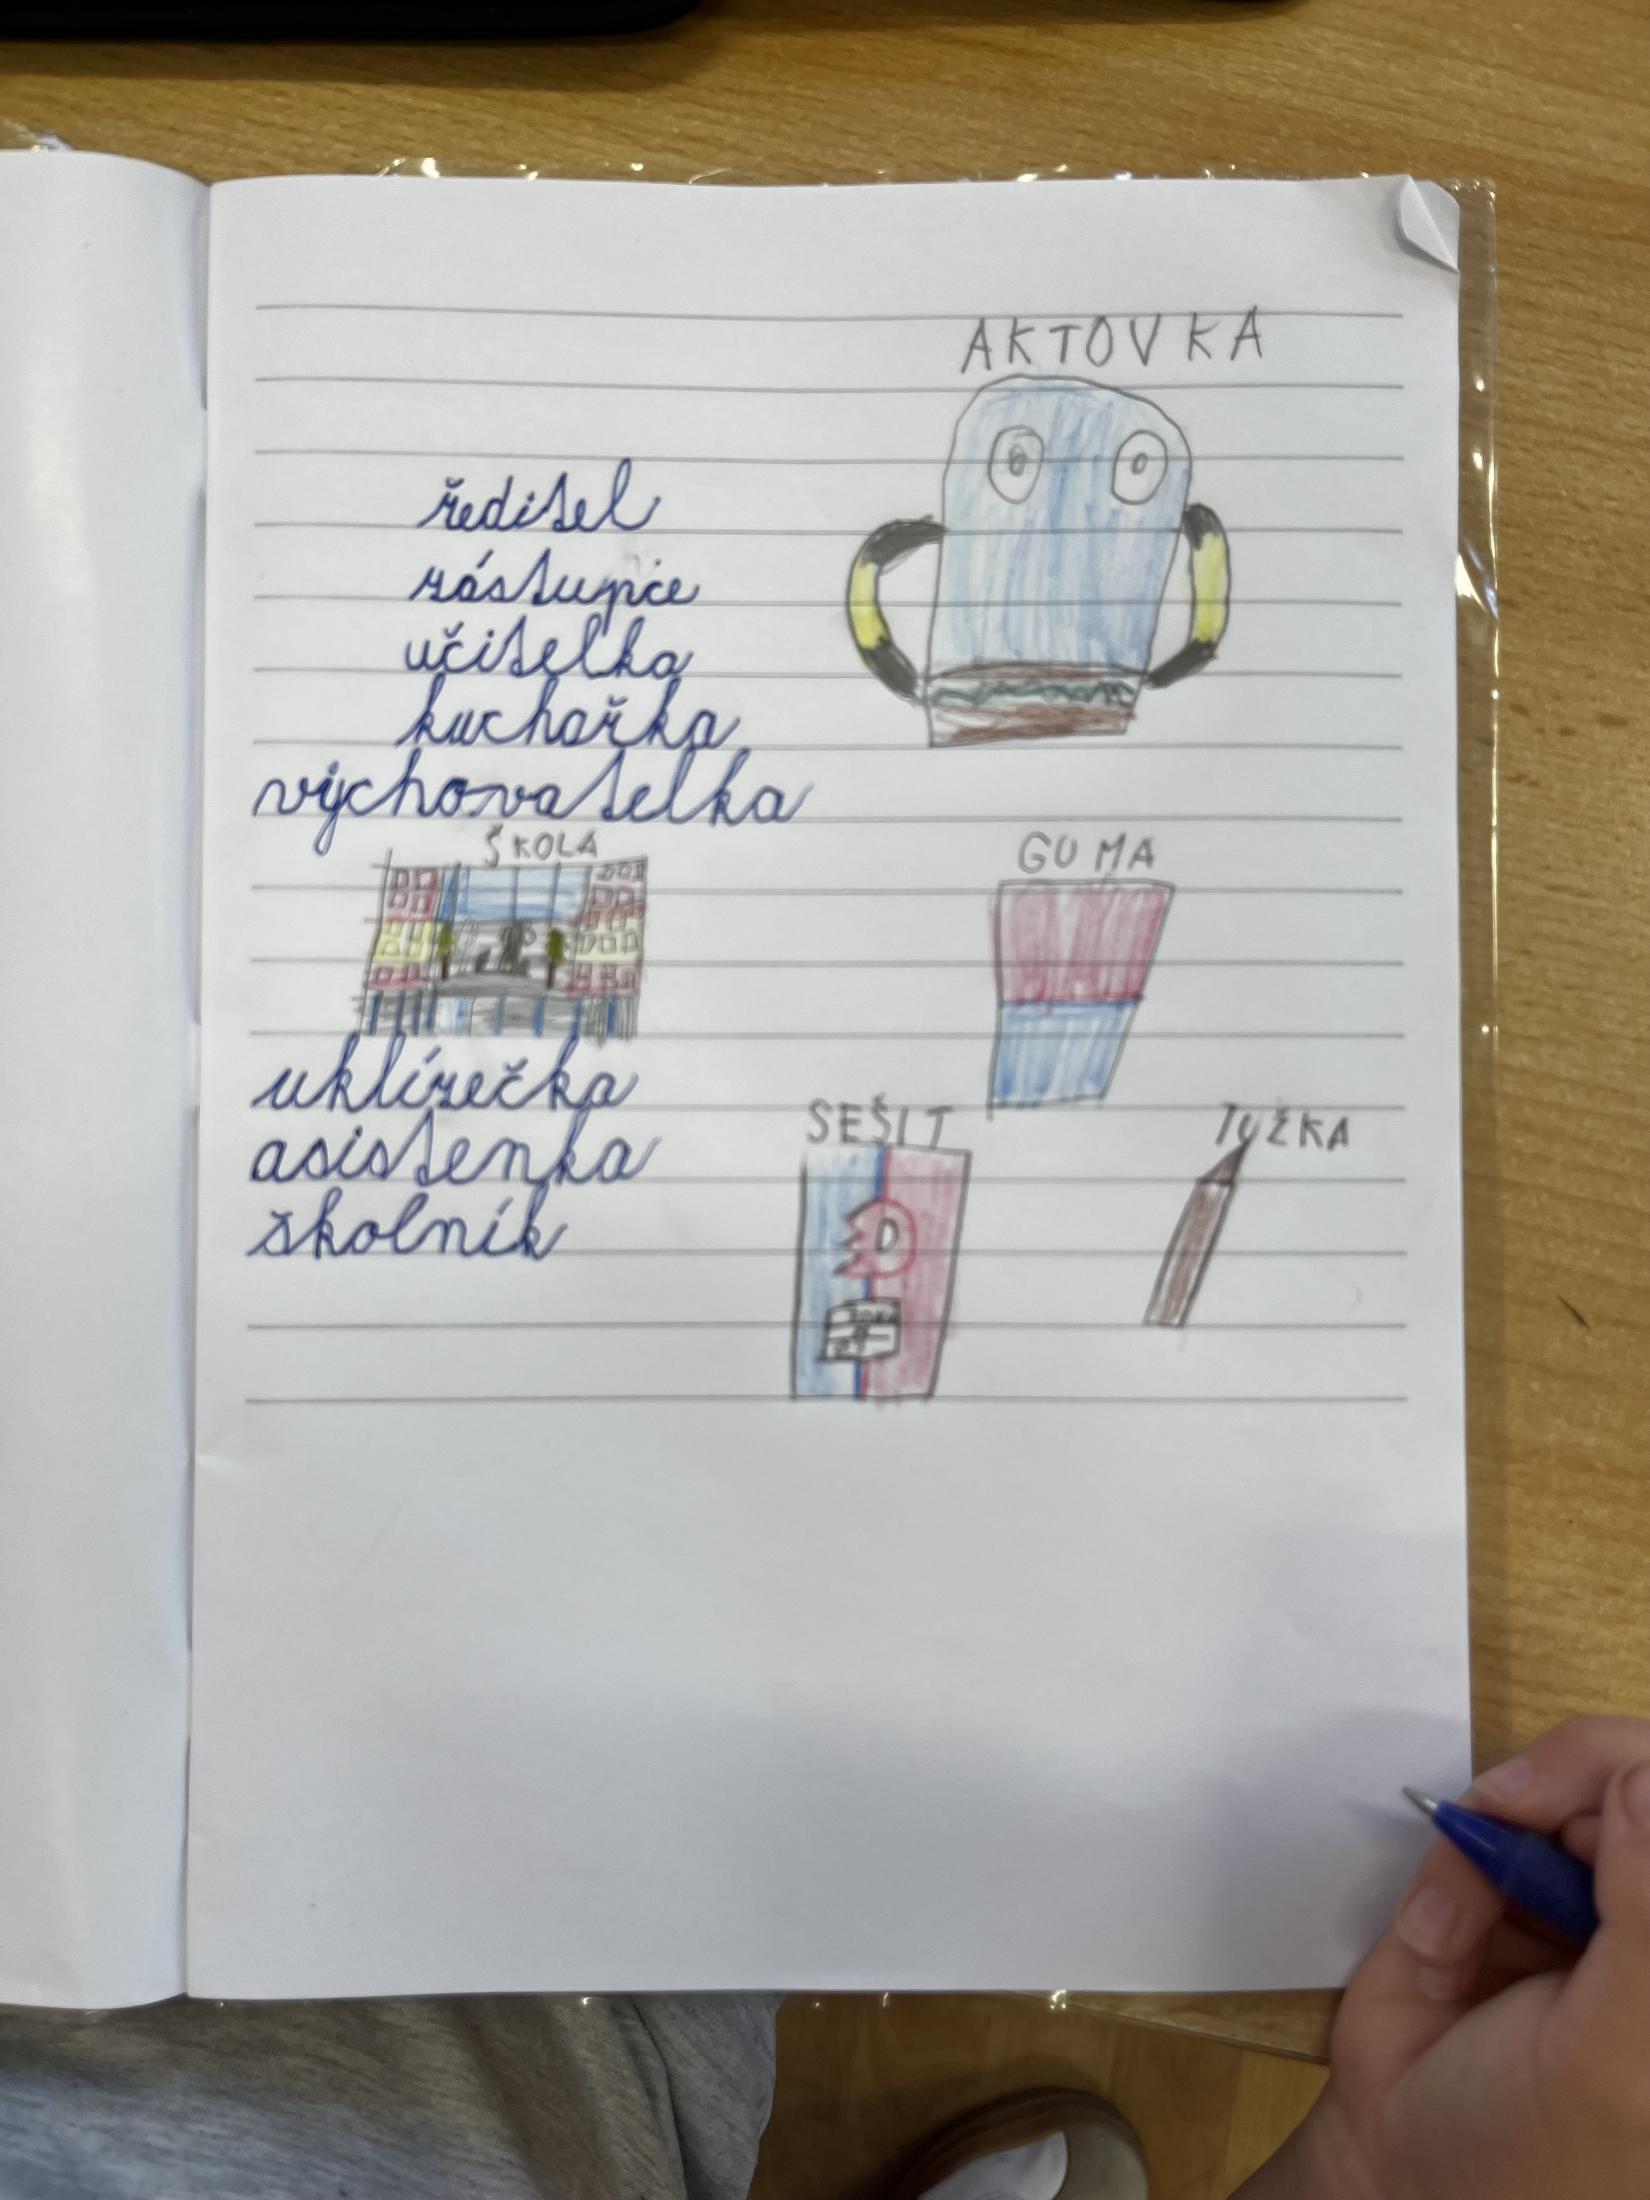 AKTOVKA
ředitel
zástupce
učitelka
kuchařka
vychovatelka
ŠKOLA
GUMA
uklízečka
asistenka
školník
SEŠIT
TUŽKA
D